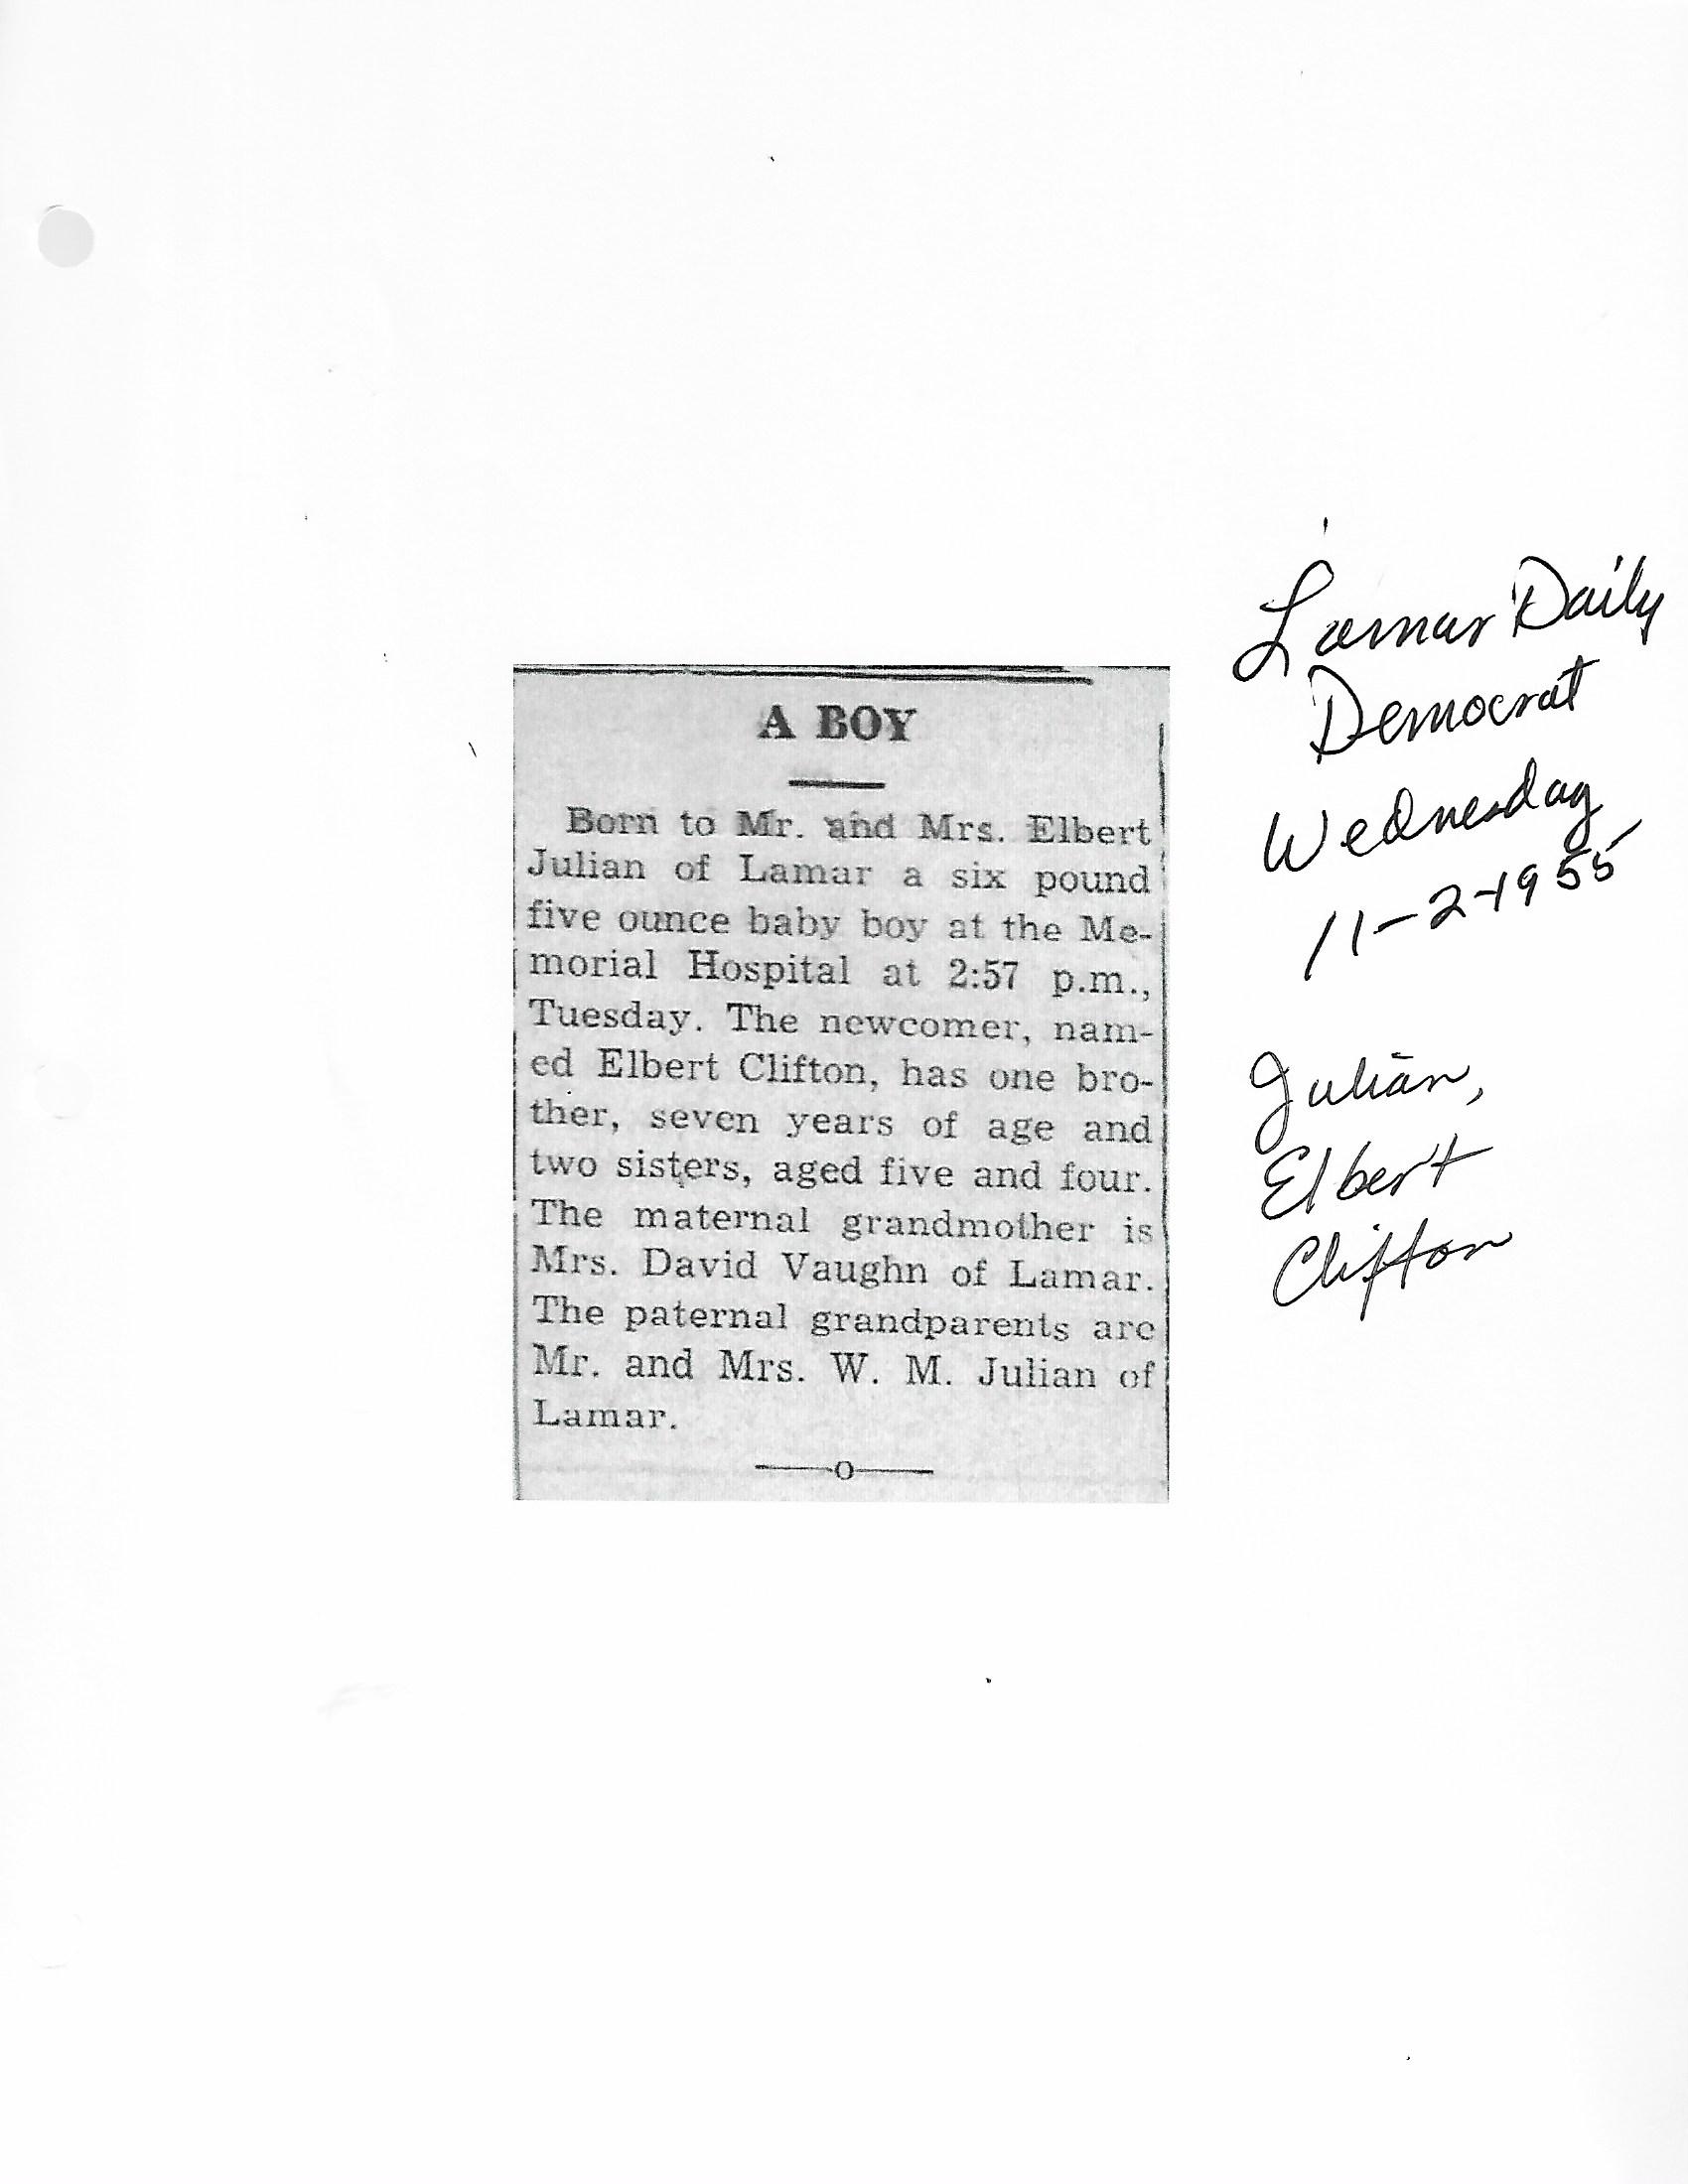 A BOY
Born to Mr. and Mrs. Elbert
Julian of Lamar a six pound
five ounce baby boy at the Me-
morial Hospital at 2:57 p.m.,
Tuesday. The newcomer, nam-
ed Elbert Clifton, has one bro-
ther, seven years of age and
two sisters, aged five and four.
The maternal grandmother is
Mrs. David Vaughn of Lamar.
The paternal grandparents are
Mr. and Mrs. W. M. Julian of
Lamar.
Lamar Daily
Democrat
Wednesday
11-2-1955
Julian,
Elbert
Clifton